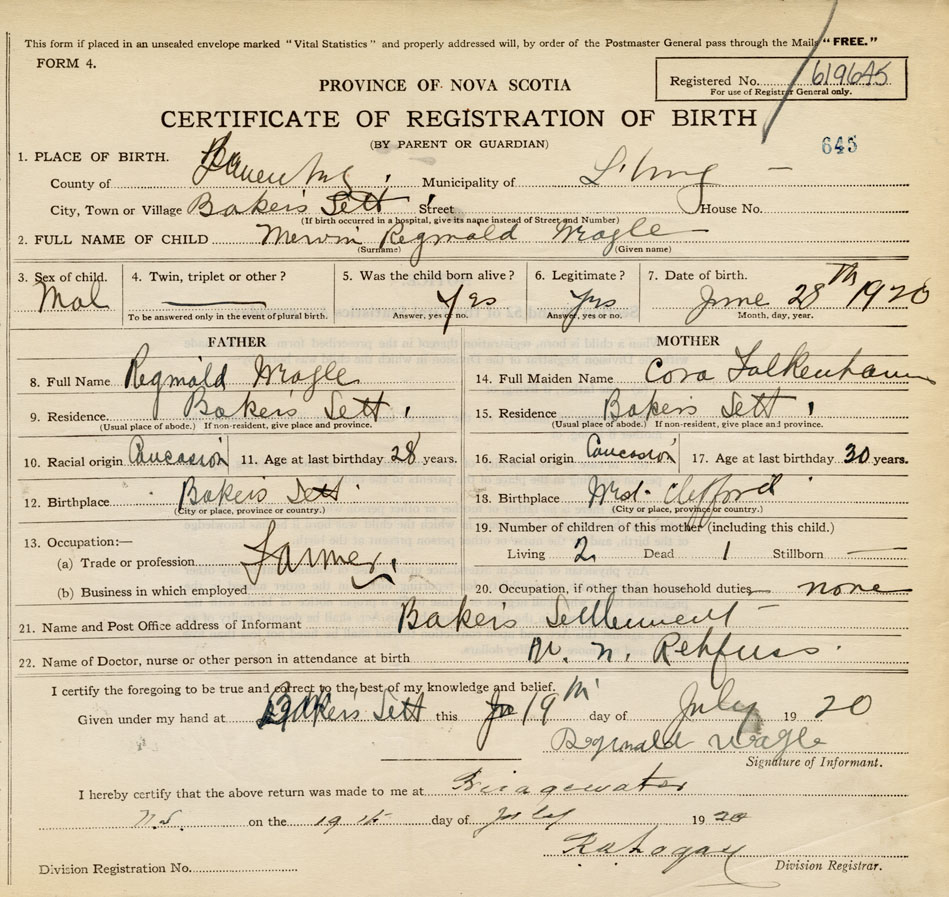 This form if placed in an unsealed envelope marked "Vital Statistics" and properly addressed will, by order of the Postmaster General pass through the Mails "FREE."
FORM 4.
PROVINCE OF NOVA SCOTIA
Registered No. 619645
For use of Registrar General only.
CERTIFICATE OF REGISTRATION OF BIRTH
(BY PARENT OR GUARDIAN)
645
1. PLACE OF BIRTH.
County of Lunenburg, Municipality of
City, Town or Village Bakers Sett, Street House No.
(If birth occurred in a hospital, give its name instead of Street and Number)
2. FULL NAME OF CHILD Mervin Reginald Wragle
(Surname) (Given name)
3. Sex of child. 4. Twin, triplet or other? 5. Was the child born alive? 6. Legitimate? 7. Date of birth.
Mal — yes yes June 28th 1920
To be answered only in the event of plural birth. Answer, yes or no. Answer, yes or no. Month, day, year.
FATHER MOTHER
8. Full Name Reginald Wragle 14. Full Maiden Name Cora Falkenham
9. Residence Bakers Sett, 15. Residence Bakers Sett,
(Usual place of abode.) If non-resident, give place and province. (Usual place of abode.) If non-resident, give place and province.
10. Racial origin Caucasion 11. Age at last birthday 28 years. 16. Racial origin Caucasion 17. Age at last birthday 30 years.
12. Birthplace Bakers Sett 18. Birthplace Clifford
(City or place, province or country.) (City or place, province or country.)
13. Occupation:— 19. Number of children of this mother (including this child.)
(a) Trade or profession Farmer, Living 2 Dead 1 Stillborn —
(b) Business in which employed 20. Occupation, if other than household duties none
21. Name and Post Office address of Informant Bakers Settlement
22. Name of Doctor, nurse or other person in attendance at birth N. Rehfuss.
I certify the foregoing to be true and correct to the best of my knowledge and belief.
Given under my hand at Bakers Sett this 19th day of July 1920
Reginald Wragle
Signature of Informant.
I hereby certify that the above return was made to me at Bridgewater
N.S. on the 19th day of July 1920
Division Registration No. Division Registrar.